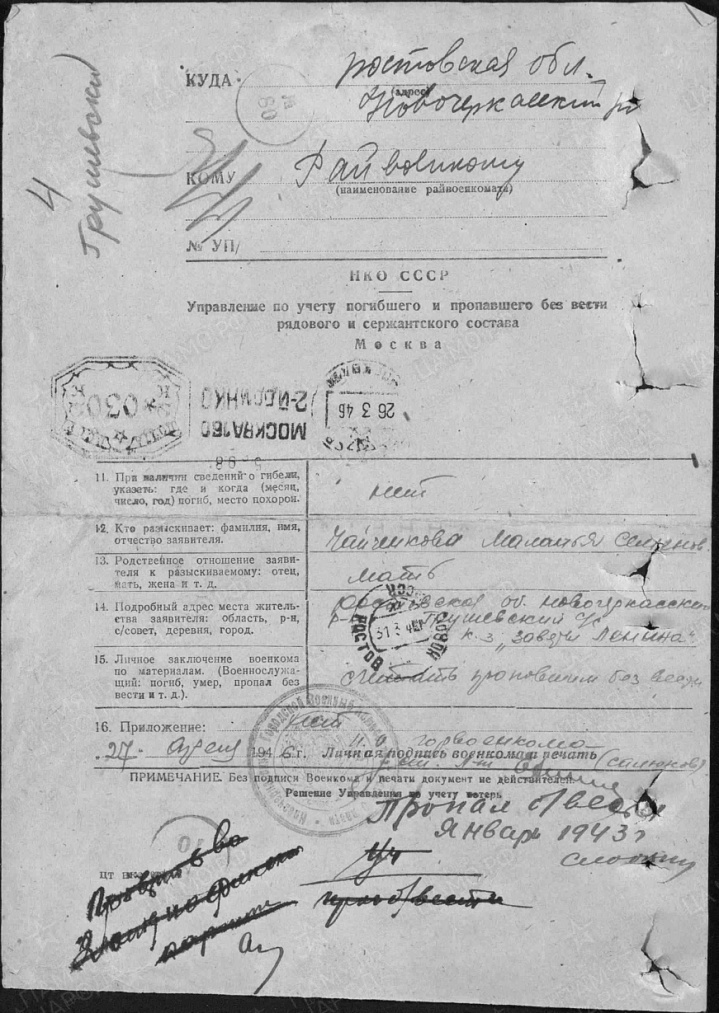 4
Грушевский
КУДА Ростовская обл.
(адрес)
Новочеркасский р
КОМУ Райвоенкому
(наименование райвоенкомата)
№ УП/
НКО СССР
Управление по учету погибшего и пропавшего без вести
рядового и сержантского состава
Москва
030
МОСКВА 160
26 3 46
11. При наличии сведений о гибели,
указать: где и когда (месяц,
число, год) погиб, место похорон.
нет
12. Кто разыскивает: фамилия, имя,
отчество заявителя.
Чайченкова Маланья Семенов
13. Родственное отношение заяви-
теля к разыскиваемому: отец,
мать, жена и т. д.
мать
14. Подробный адрес места житель-
ства заявителя: область, р-н,
с/совет, деревня, город.
Ростовская об. Новочеркасский
р-н Грушевский с/с
к-з „Заветы Ленина"
РОСТОВ
31 3
15. Личное заключение военкома
по материалам. (Военнослужа-
щий: погиб, умер, пропал без
вести и т. д.).
считать пропавшим без вести
16. Приложение: нет
„27" апреля 1946 г. Личная подпись военкома и печать
горвоенкома
ПРИМЕЧАНИЕ. Без подписи Военкома и печати документ не действителен.
Решение Управления по учету потерь
Пропал б/вести
Январь 1943 г
10